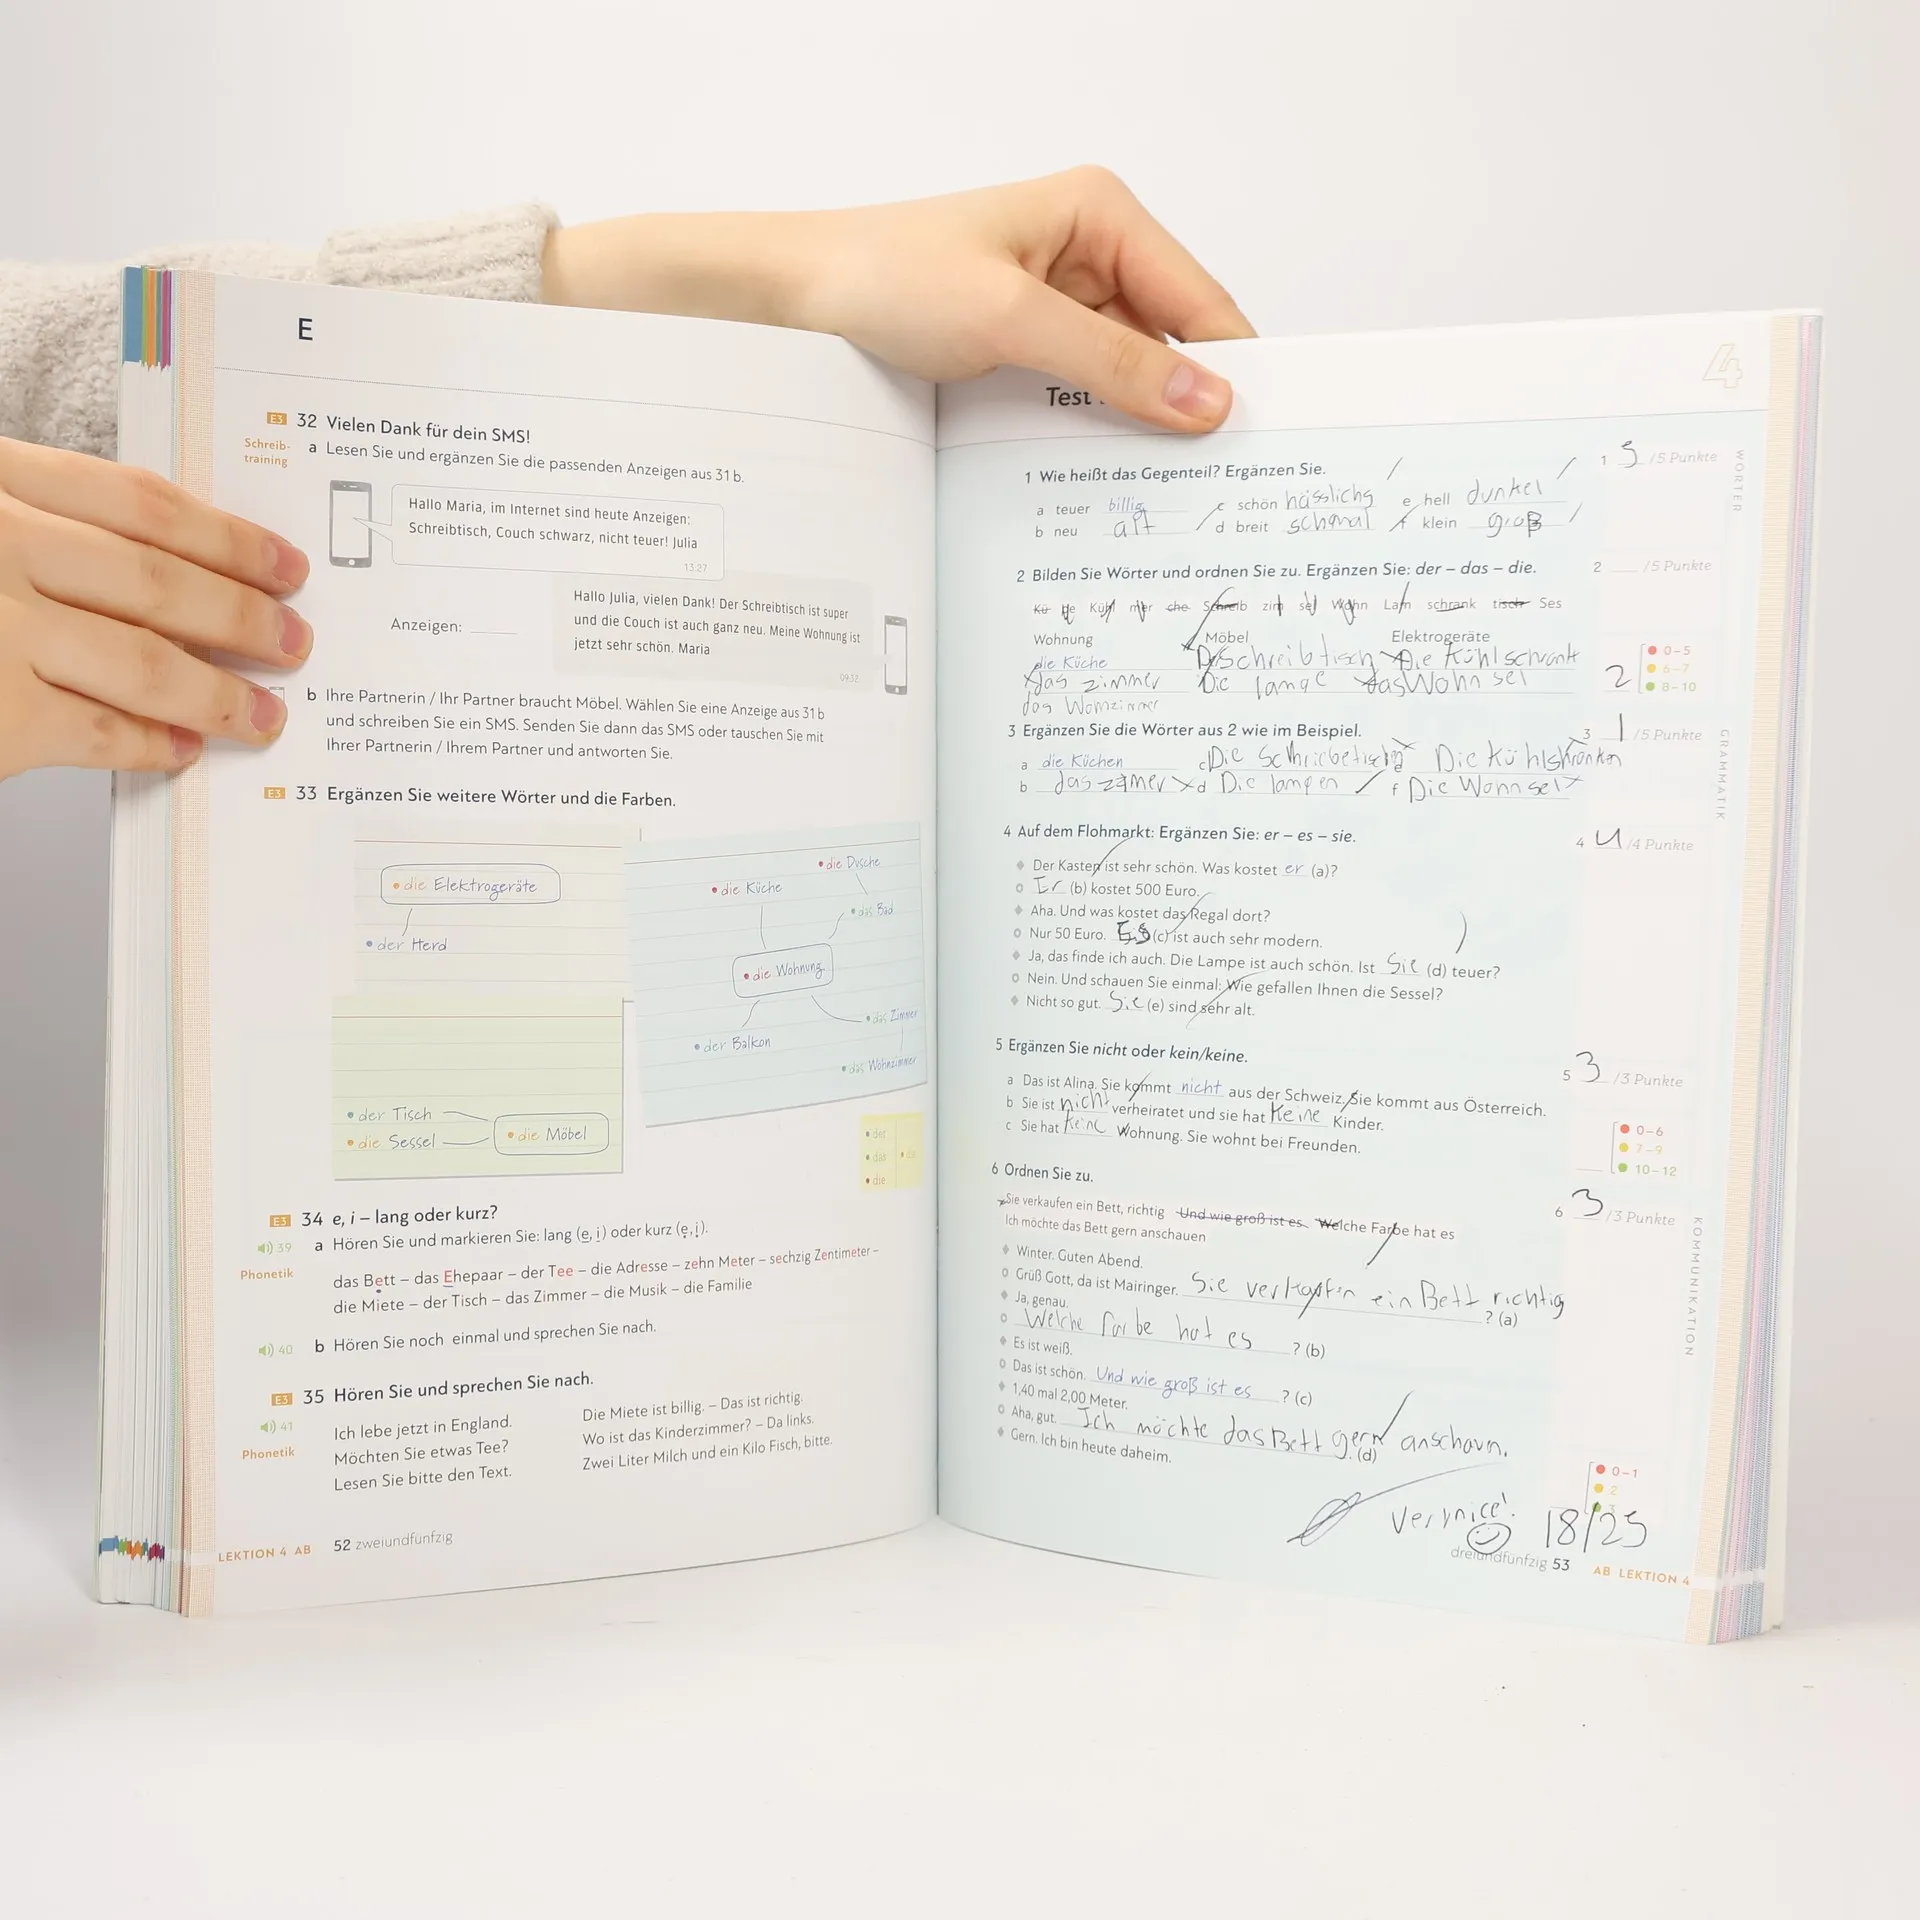 E
E3 32 Vielen Dank für dein SMS!
Schreib-
training
a Lesen Sie und ergänzen Sie die passenden Anzeigen aus 31 b.
Hallo Maria, im Internet sind heute Anzeigen:
Schreibtisch, Couch schwarz, nicht teuer! Julia
13:27
Hallo Julia, vielen Dank! Der Schreibtisch ist super
und die Couch ist auch ganz neu. Meine Wohnung ist
jetzt sehr schön. Maria
09:32
Anzeigen:
b Ihre Partnerin / Ihr Partner braucht Möbel. Wählen Sie eine Anzeige aus 31 b
und schreiben Sie ein SMS. Senden Sie dann das SMS oder tauschen Sie mit
Ihrer Partnerin / Ihrem Partner und antworten Sie.
E3 33 Ergänzen Sie weitere Wörter und die Farben.
die Elektrogeräte
der Herd
die Dusche
die Küche
das Bad
die Wohnung
das Zimmer
der Balkon
das Wohnzimmer
der Tisch
die Sessel
die Möbel
der
das
die
E3 34 e, i – lang oder kurz?
39
Phonetik
a Hören Sie und markieren Sie: lang (e, i) oder kurz (e, i).
das Bett – das Ehepaar – der Tee – die Adresse – zehn Meter – sechzig Zentimeter –
die Miete – der Tisch – das Zimmer – die Musik – die Familie
40 b Hören Sie noch einmal und sprechen Sie nach.
E3 35 Hören Sie und sprechen Sie nach.
41
Phonetik
Ich lebe jetzt in England.
Möchten Sie etwas Tee?
Lesen Sie bitte den Text.
Die Miete ist billig. – Das ist richtig.
Wo ist das Kinderzimmer? – Da links.
Zwei Liter Milch und ein Kilo Fisch, bitte.
LEKTION 4 AB 52 zweiundfünfzig
Test
4
1 Wie heißt das Gegenteil? Ergänzen Sie.
1 5 /5 Punkte
WÖRTER
a teuer billig c schön hässlichg e hell dunkel
b neu alt d breit schmal f klein groß
2 Bilden Sie Wörter und ordnen Sie zu. Ergänzen Sie: der – das – die.
2 /5 Punkte
Kü pe Kühl mer che Schreib zim sel Wohn Lam schrank tisch Ses
Wohnung Möbel Elektrogeräte
die Küche Dschreibtisch Die Kühlschrank
das zimmer Die lampe das Wohnsel
das Womzimmer
0–5
6–7
8–10
2
3 Ergänzen Sie die Wörter aus 2 wie im Beispiel.
3 1 /5 Punkte
GRAMMATIK
a die Küchen c Die Schriebetisch e Die Kühlshränken
b das zimer d Die lampen f Die Wonnsel
4 Auf dem Flohmarkt: Ergänzen Sie: er – es – sie.
4 4 /4 Punkte
Der Kasten ist sehr schön. Was kostet er (a)?
Er (b) kostet 500 Euro.
Aha. Und was kostet das Regal dort?
Nur 50 Euro. Es (c) ist auch sehr modern.
Ja, das finde ich auch. Die Lampe ist auch schön. Ist Sie (d) teuer?
Nein. Und schauen Sie einmal: Wie gefallen Ihnen die Sessel?
Nicht so gut. Sie (e) sind sehr alt.
5 Ergänzen Sie nicht oder kein/keine.
5 3 /3 Punkte
a Das ist Alina. Sie kommt nicht aus der Schweiz. Sie kommt aus Österreich.
b Sie ist nicht verheiratet und sie hat Keine Kinder.
c Sie hat keine Wohnung. Sie wohnt bei Freunden.
0–6
7–9
10–12
6 Ordnen Sie zu.
6 3 /3 Punkte
KOMMUNIKATION
Sie verkaufen ein Bett, richtig Und wie groß ist es Welche Farbe hat es
Ich möchte das Bett gern anschauen
Winter. Guten Abend.
Grüß Gott, da ist Mairinger. Sie verkaufen ein Bett richtig ? (a)
Ja, genau.
Welche farbe hat es ? (b)
Es ist weiß.
Das ist schön. Und wie groß ist es ? (c)
1,40 mal 2,00 Meter.
Aha, gut. Ich möchte das Bett gern anschaun. (d)
Gern. Ich bin heute daheim.
0–1
2
3
Very nice! 18/25
dreiundfünfzig 53 AB LEKTION 4